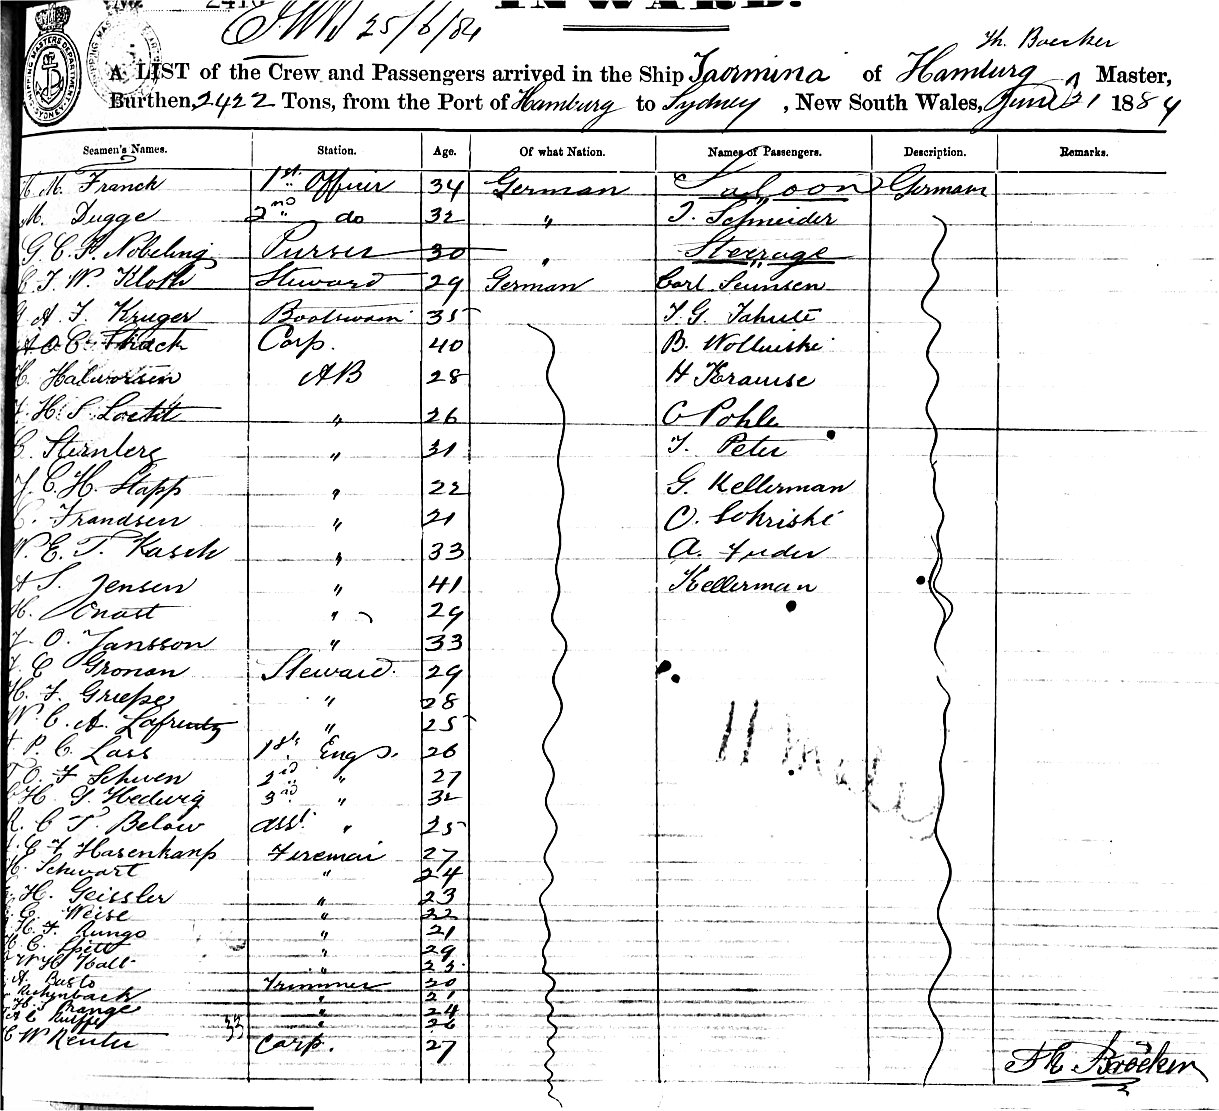 INWARD.
25/6/84
Th. Boecker
A LIST of the Crew and Passengers arrived in the Ship Taormina of Hamburg Master,
Burthen, 2422 Tons, from the Port of Hamburg to Sydney, New South Wales, June 21 1884
Seamen's Names. Station. Age. Of what Nation. Names of Passengers. Description. Remarks.
M. Franck 1st Officer 34 German Saloon German
M. Dugge 2nd do 32 " J. Schneider
G. C. F. Nobeling Purser 30 " Steerage
C. F. W. Kloth Steward 29 German Carl
A. F. Kruger Boatswain 35
A. O. C. Carp. 40 B.
H. Halvorsen AB 28 H Krause
H. S. " 26 O Pohle
C. Sternberg " 31 F. Peter
J. C. H. Stapp " 22 G. Kellerman
C. Frandsen " 21 O.
W. E. T. Kasch " 33 A.
A S. Jensen " 41 Kellerman
H. " 29
J. O. Jansson " 33
J. E Gronan Steward 29
H. F. " 28
W. C. A. Lafrentz " 25
P. C. Lass 1st Eng. 26
O. F Schwen 2nd " 27
H. Hedwig 3rd " 32
R. C T. Below asst. " 25
E F Hasenkamp Fireman 27
H. Schwart " 24
H. Geissler " 23
C. Weise " 22
H. F. Rungo " 21
C. " 29
W H " 25
A. Busto Trimmer 20
" 21
H. Prange " 24
33 " 26
C W Reuter Carp. 27
Th. Bröcker